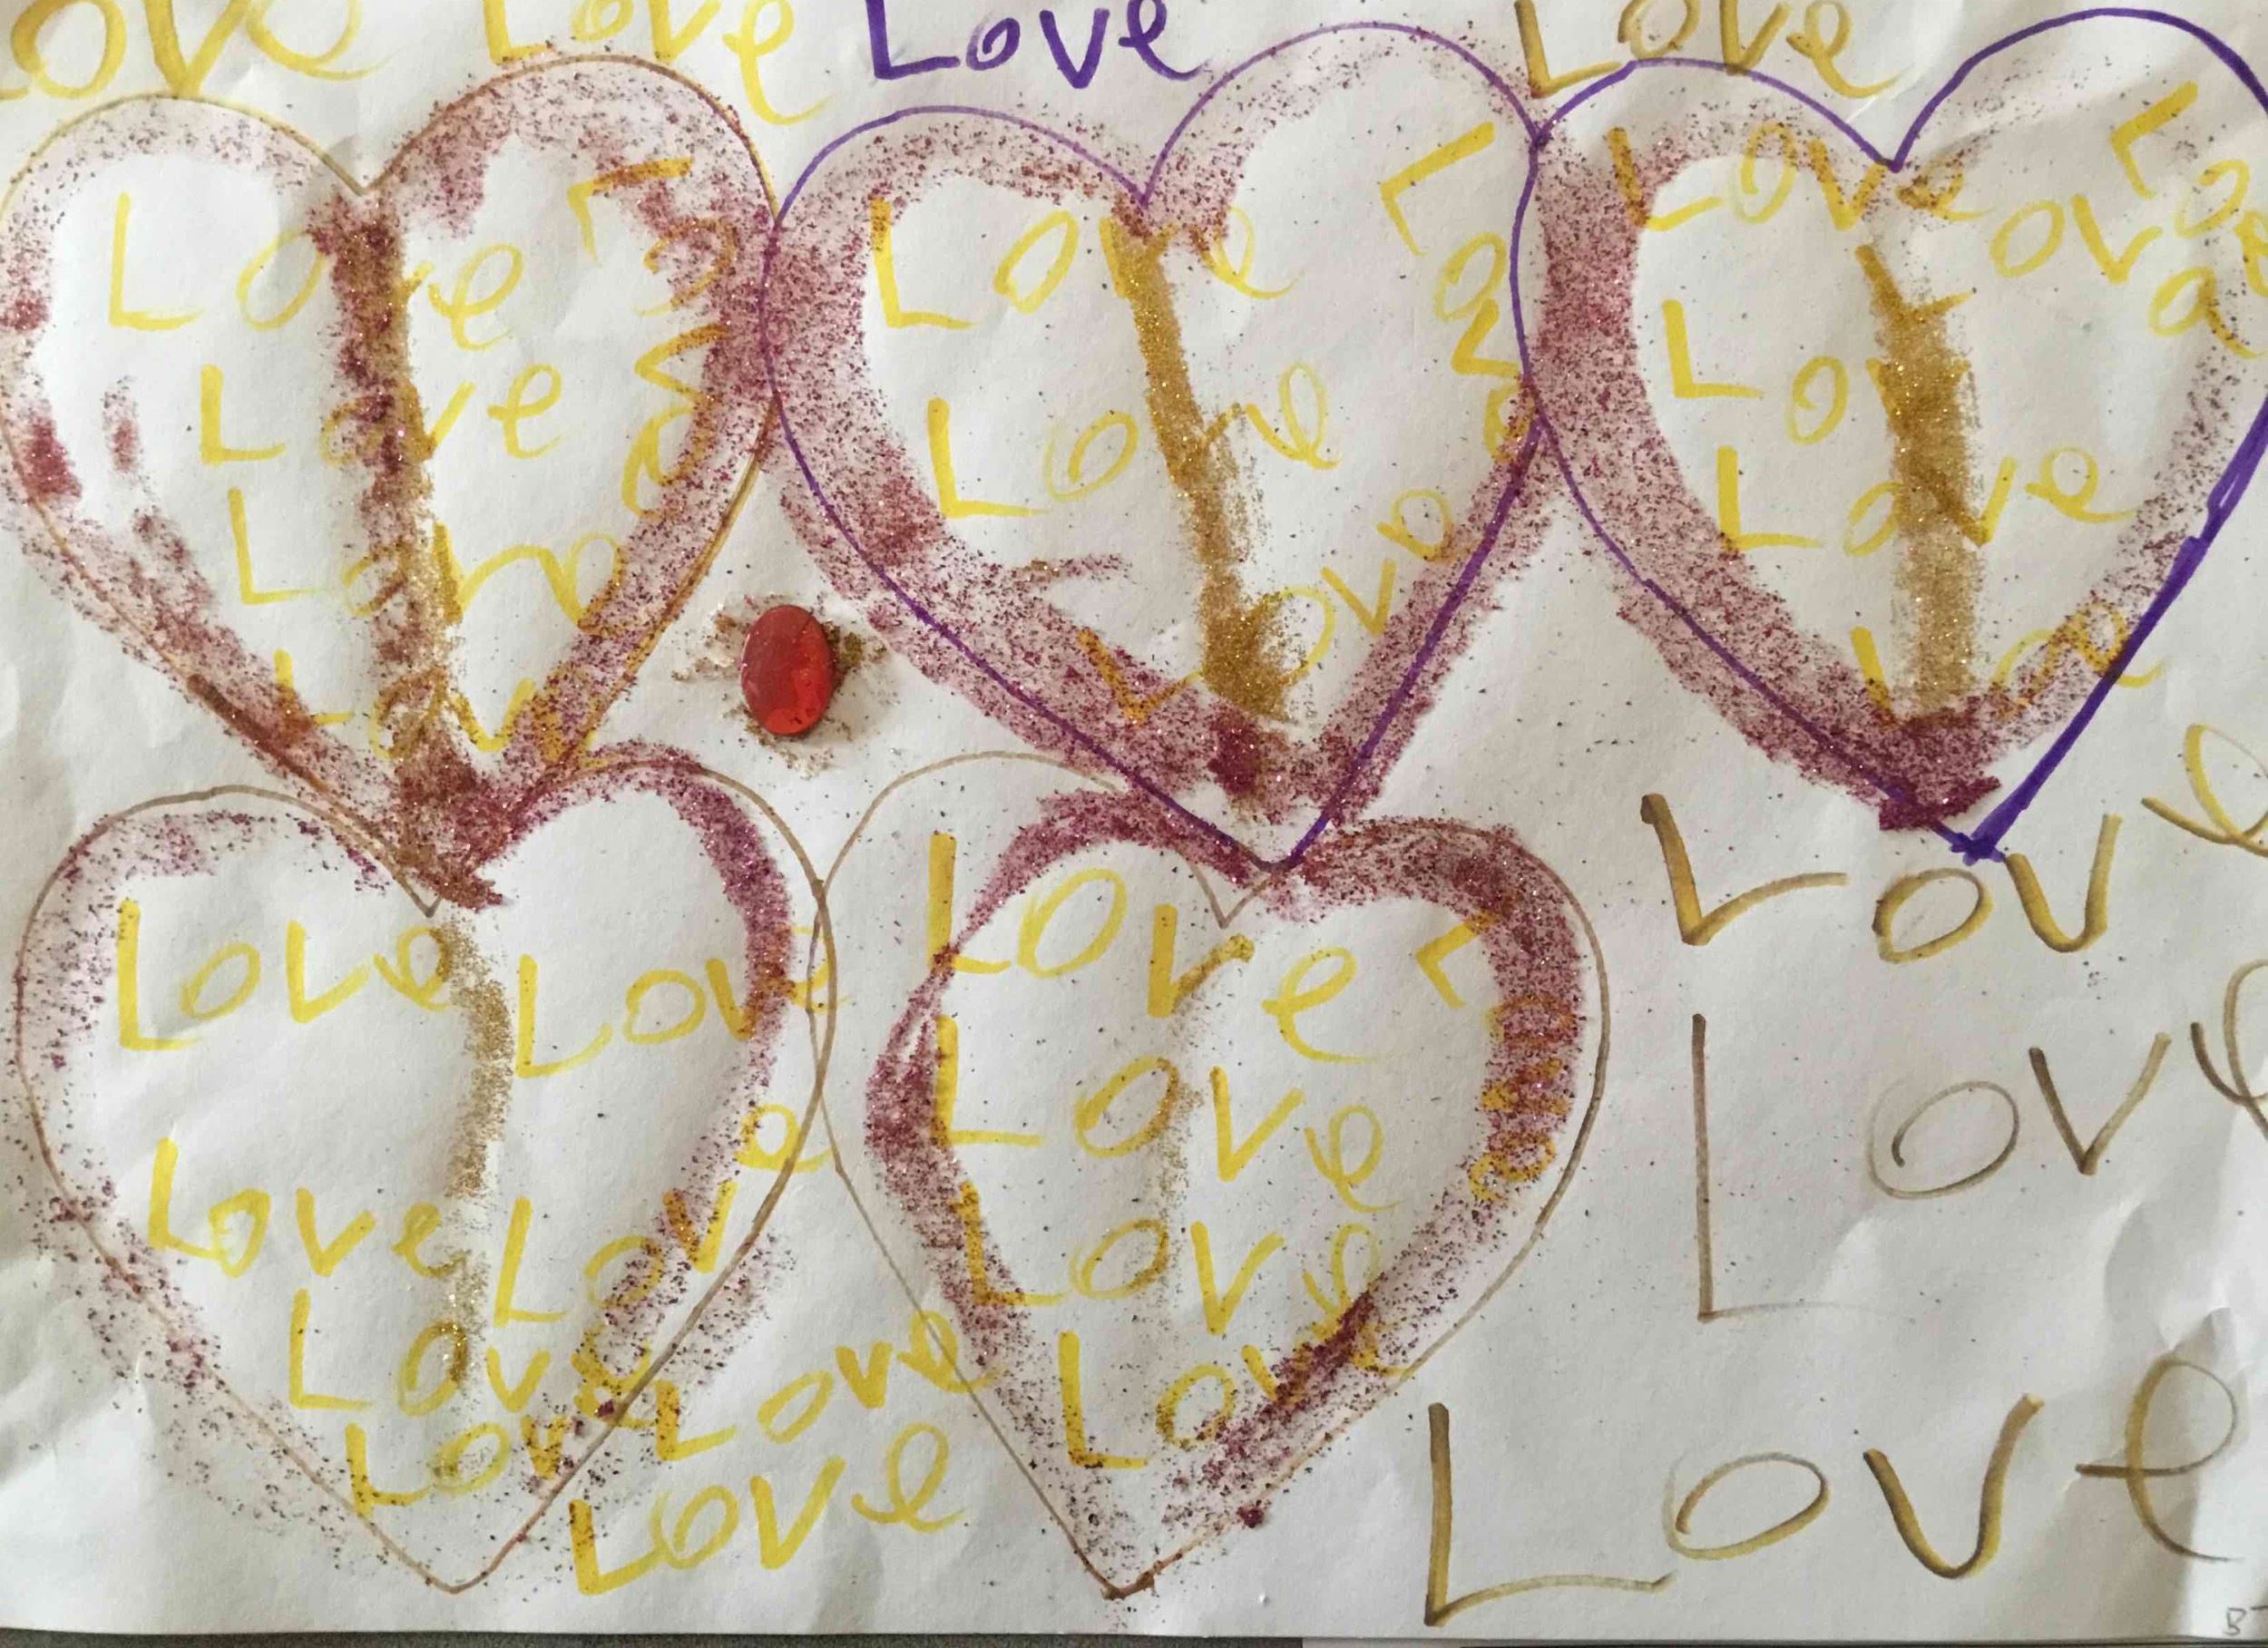 Love Love Love Love
Love Love
Love
Love
Lov
Love Love
Love
Love
Love Love
Lo
Love
L
Love
Love
Love
Love Love
Love Lov
Love
Love
Love Love
Love
Love
Love
Love
Love
Love